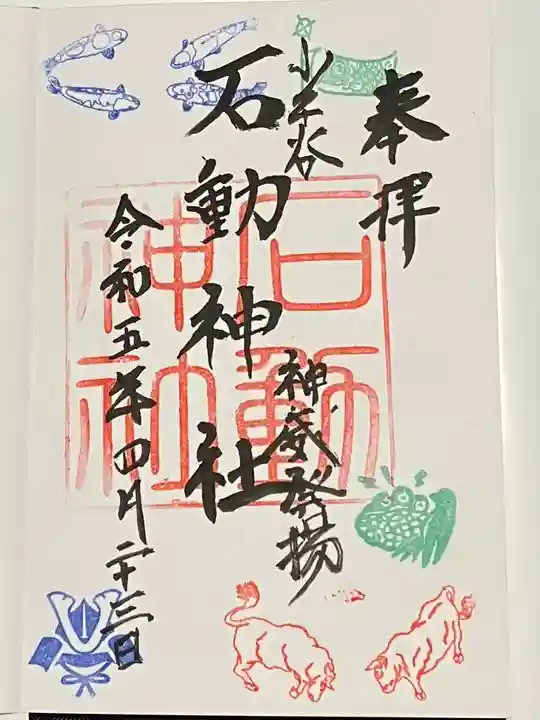 奉拝
小千谷
神威発揚
石動神社
令和五年四月二十三日
石動
神社